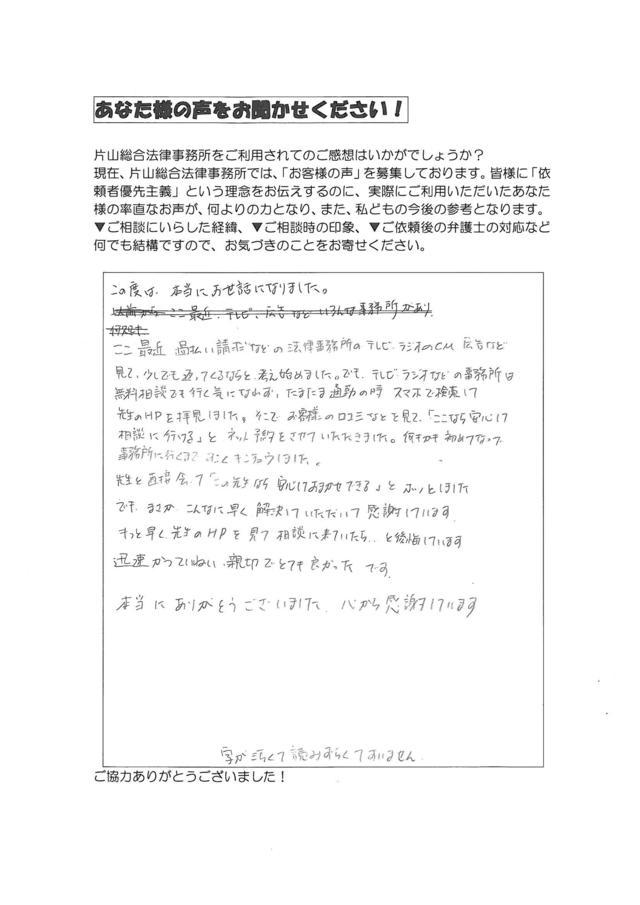 あなた様の声をお聞かせください！
片山総合法律事務所をご利用されてのご感想はいかがでしょうか？
現在、片山総合法律事務所では、「お客様の声」を募集しております。皆様に「依
頼者優先主義」という理念をお伝えするのに、実際にご利用いただいたあなた
様の率直なお声が、何よりの力となり、また、私どもの今後の参考となります。
▼ご相談にいらした経緯、▼ご相談時の印象、▼ご依頼後の弁護士の対応など
何でも結構ですので、お気づきのことをお寄せください。
この度は、本当にお世話になりました。
以前から ここ最近、テレビ、広告など いろんな事務所があり
ここ最近 過払い請求などの法律事務所のテレビ、ラジオのCM 広告など
見て、少しでも返ってくるならと考え始めました。でも、テレビ ラジオなどの事務所は
無料相談でも行く気になれず、たまたま通勤の時 スマホで検索して
先生のHPを拝見しました。そこで お客様の口コミなどを見て、「ここなら安心して
相談に行ける」と ネット予約をさせていただきました。何もかも初めてなので
事務所に行くまで すごくキンチョウしました。
先生と直接会って「この先生なら 安心しておまかせできる」と ホッとしました
でも、まさか こんなに早く 解決していただいて 感謝しています
もっと早く先生のHPを見て 相談に来ていたら、と後悔しています
迅速かつていねい、親切でとても良かった です
本当に ありがとうございました、心から感謝しています
字が汚くて読みずらくてすいません
ご協力ありがとうございました！